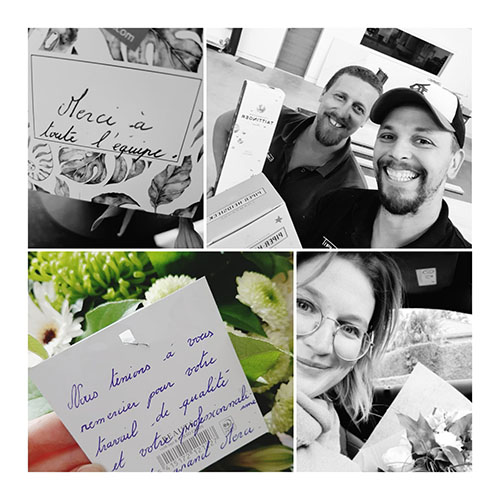 .com
Merci à
toute l'équipe.
Nous tenions à vous
remercier pour votre
travail de qualité
et votre professionnali-
sme
grand Merci.